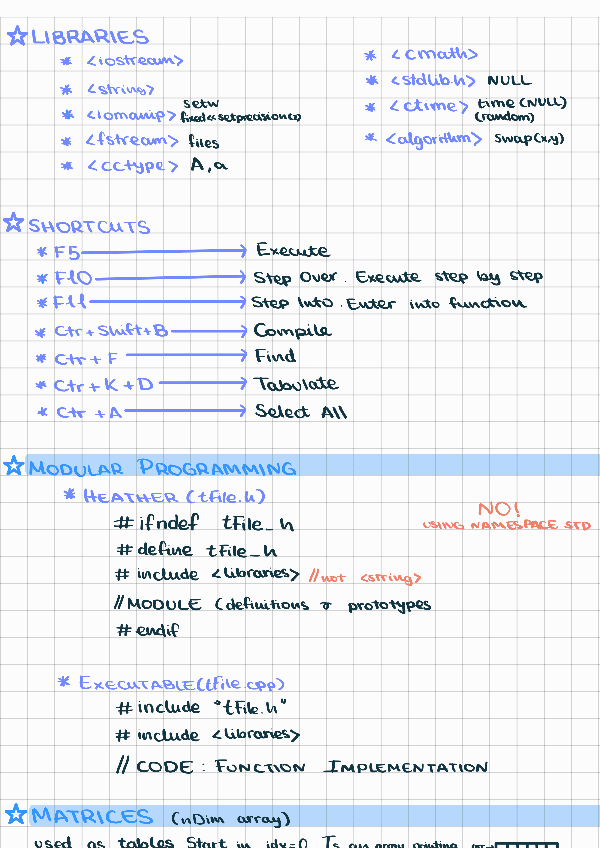 ☆ LIBRARIES
* <iostream>
* <string>
* <iomanip> setw
fixed<<setprecision(n)
* <fstream> files
* <cctype> A,a
* <cmath>
* <stdlib.h> NULL
* <ctime> time(NULL)
(random)
* <algorithm> swap(x,y)
☆ SHORTCUTS
* F5 → Execute
* F10 → Step Over. Execute step by step
* F11 → Step Into. Enter into function
* Ctr+Shift+B → Compile
* Ctr+F → Find
* Ctr+K+D → Tabulate
* Ctr+A → Select All
☆ MODULAR PROGRAMMING
* HEATHER (tFile.h)
NO!
USING NAMESPACE STD
# ifndef tFile_h
# define tFile_h
# include <libraries> //not <string>
//MODULE (definitions & prototypes
# endif
* EXECUTABLE(tFile.cpp)
# include "tFile.h"
# include <libraries>
// CODE: FUNCTION IMPLEMENTATION
☆ MATRICES (nDim array)
used as tables Start in idx=0